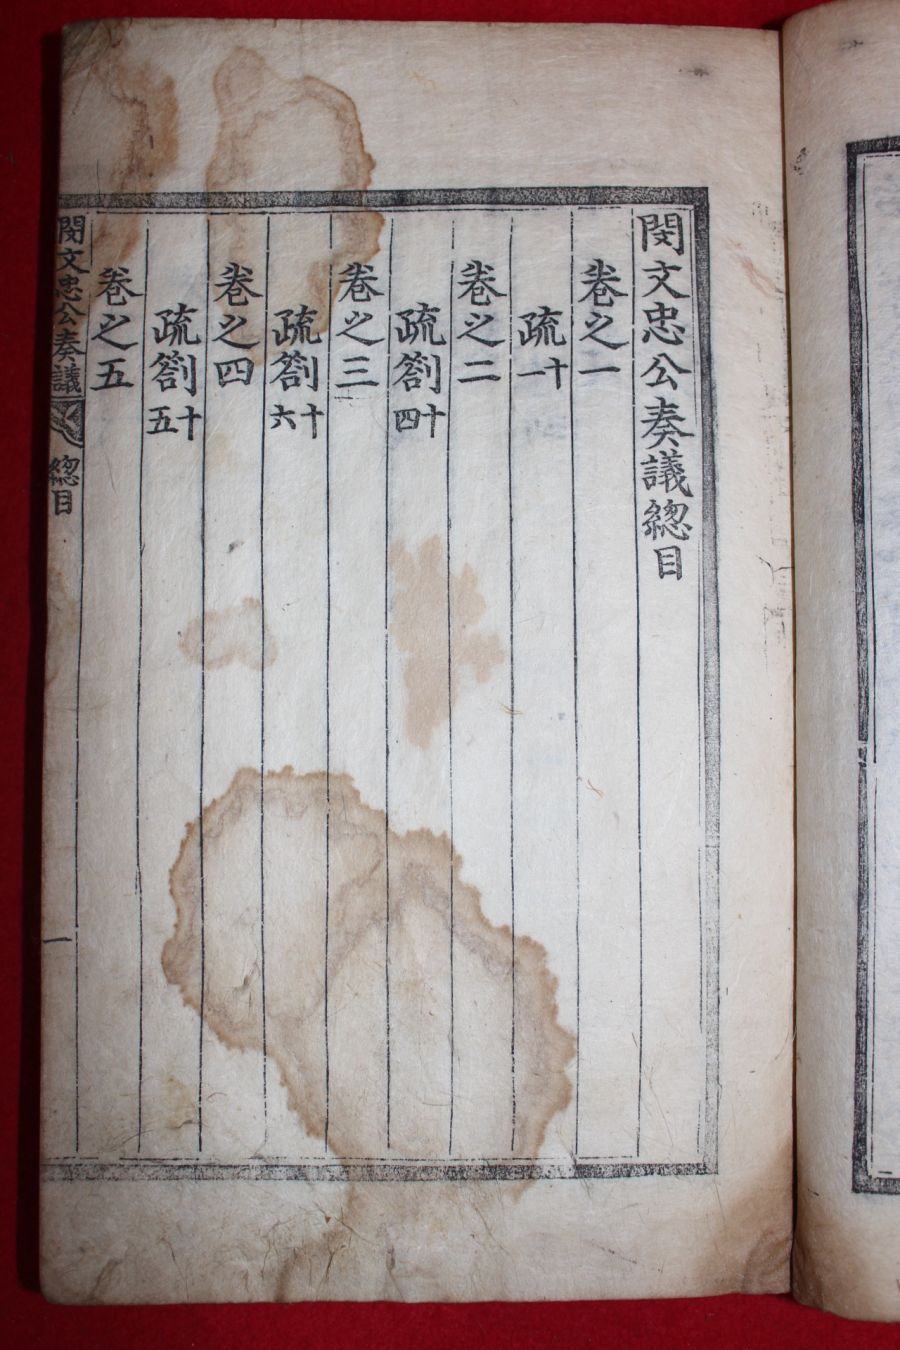 閔文忠公奏議總目
卷之一
疏十一
卷之二
疏劄十四
卷之三
疏劄十六
卷之四
疏劄十五
卷之五
閔文忠公奏議
總目
一